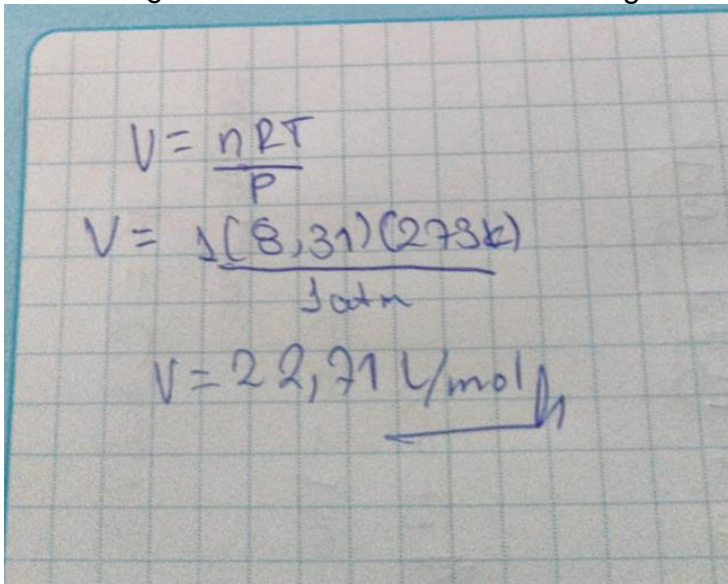 V = nRT
P
V = 1(8,31)(273k)
1 atm
V = 22,71 L/mol